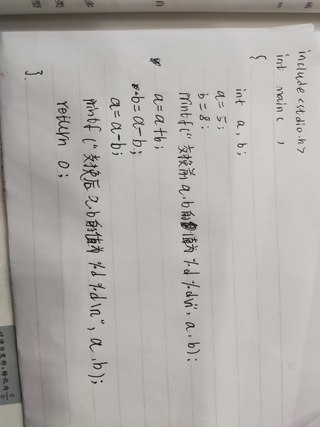 include <stdio.h>
int main( )
{
int a, b;
a = 5;
b = 8;
printf("交换前a.b的值为%d %d\n", a, b);
a = a+b;
b = a-b;
a = a-b;
printf("交换后a.b的值为%d %d\n", a, b);
return 0;
}.